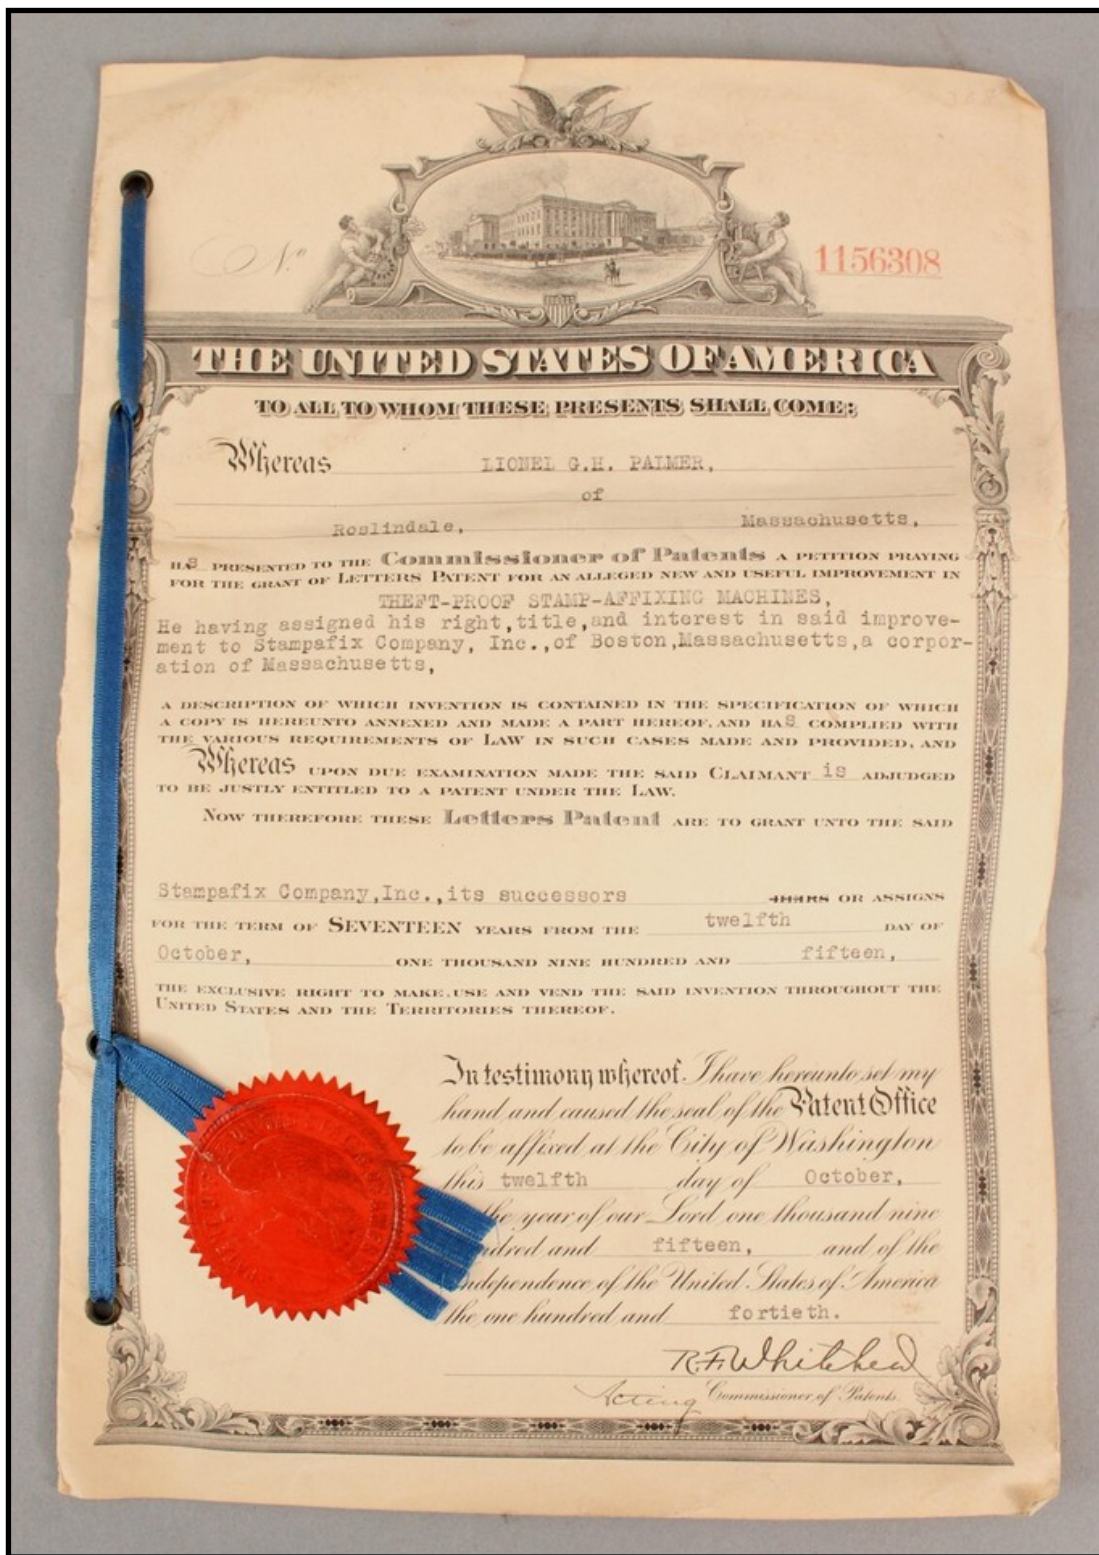 No. 1156308
THE UNITED STATES OF AMERICA
TO ALL TO WHOM THESE PRESENTS SHALL COME:
Whereas LIONEL G.H. PALMER,
of
Roslindale, Massachusetts,
HAS PRESENTED TO THE Commissioner of Patents A PETITION PRAYING
FOR THE GRANT OF LETTERS PATENT FOR AN ALLEGED NEW AND USEFUL IMPROVEMENT IN
THEFT-PROOF STAMP-AFFIXING MACHINES,
He having assigned his right,title,and interest in said improve-
ment to Stampafix Company, Inc.,of Boston,Massachusetts,a corpor-
ation of Massachusetts,
A DESCRIPTION OF WHICH INVENTION IS CONTAINED IN THE SPECIFICATION OF WHICH
A COPY IS HEREUNTO ANNEXED AND MADE A PART HEREOF, AND HAS COMPLIED WITH
THE VARIOUS REQUIREMENTS OF LAW IN SUCH CASES MADE AND PROVIDED, AND
Whereas UPON DUE EXAMINATION MADE THE SAID CLAIMANT is ADJUDGED
TO BE JUSTLY ENTITLED TO A PATENT UNDER THE LAW.
NOW THEREFORE THESE Letters Patent ARE TO GRANT UNTO THE SAID
Stampafix Company,Inc.,its successors HEIRS OR ASSIGNS
FOR THE TERM OF SEVENTEEN YEARS FROM THE twelfth DAY OF
October, ONE THOUSAND NINE HUNDRED AND fifteen,
THE EXCLUSIVE RIGHT TO MAKE, USE AND VEND THE SAID INVENTION THROUGHOUT THE
UNITED STATES AND THE TERRITORIES THEREOF.
In testimony whereof I have hereunto set my
hand and caused the seal of the Patent Office
to be affixed at the City of Washington
this twelfth day of October,
the year of our Lord one thousand nine
ndred and fifteen, and of the
Independence of the United States of America
the one hundred and fortieth.
R.F. Whitehead
Acting Commissioner of Patents.